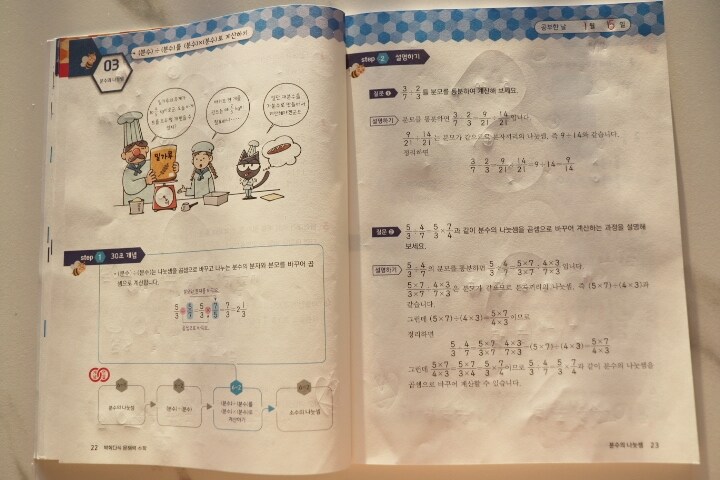 (분수) ÷ (분수)를 (분수)×(분수)로 계산하기
03
분수의 나눗셈
밀가루
step 1 30초 개념
• (분수) ÷ (분수)는 나눗셈을 곱셈으로 바꾸고 나누는 분수의 분자와 분모를 바꾸어 곱
셈으로 계산합니다.
분수의 나눗셈
(분수) ÷ (분수)
(분수) ÷ (분수)를
(분수) × (분수)로
계산하기
소수의 나눗셈
22
공부한 날 1월 15일
step 2 설명하기
질문 ❶ 3/7 ÷ 2/3 를 분모를 통분하여 계산해 보세요.
설명하기 분모를 통분하면 3/7 ÷ 2/3 = 9/21 ÷ 14/21 입니다.
9/21 ÷ 14/21 는 분모가 같으므로 분자끼리의 나눗셈, 즉 9÷14와 같습니다.
정리하면
3/7 ÷ 2/3 = 9/21 ÷ 14/21 = 9÷14 = 9/14
질문 ❷ 5/3 ÷ 4/7 = 5/3 × 7/4 과 같이 분수의 나눗셈을 곱셈으로 바꾸어 계산하는 과정을 설명해
보세요.
설명하기 5/3 ÷ 4/7 의 분모를 통분하면 5/3 ÷ 4/7 = 5×7/3×7 ÷ 4×3/7×3 입니다.
5×7/3×7 ÷ 4×3/7×3 은 분모가 같으므로 분자끼리의 나눗셈, 즉 (5×7)÷(4×3)과
같습니다.
그런데 (5×7)÷(4×3) = 5×7/4×3 이므로
정리하면
5/3 ÷ 4/7 = 5×7/3×7 ÷ 4×3/7×3 = (5×7)÷(4×3) = 5×7/4×3
그런데 5×7/4×3 = 5×7/3×4 = 5/3 × 7/4 이므로 5/3 ÷ 4/7 = 5/3 × 7/4 과 같이 분수의 나눗셈을
곱셈으로 바꾸어 계산할 수 있습니다.
분수의 나눗셈 23